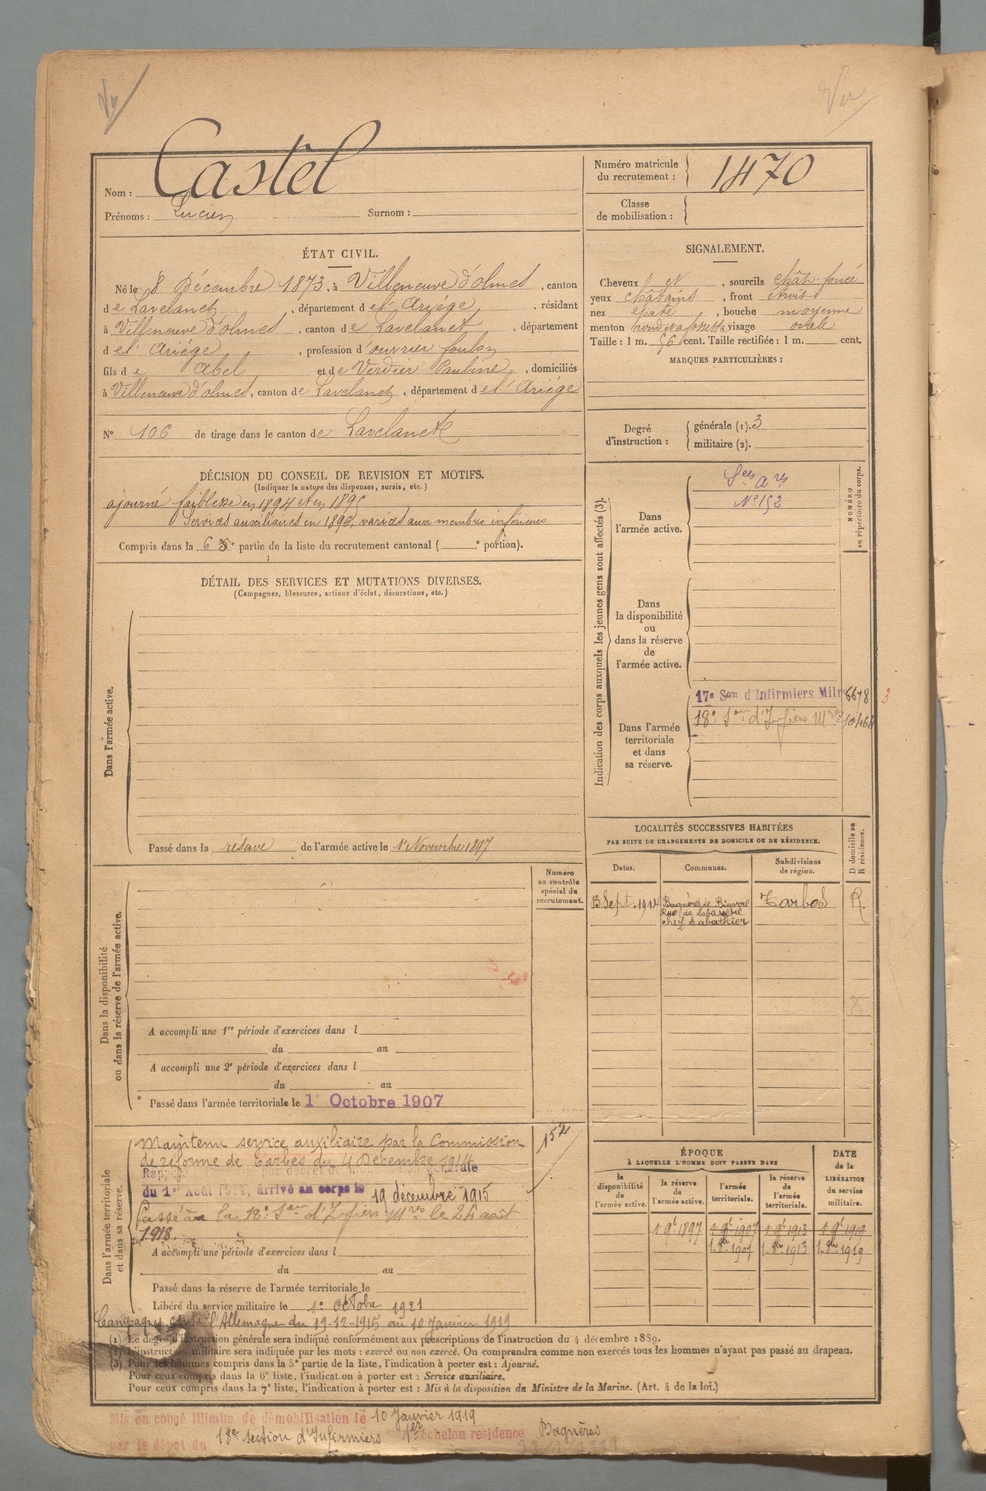 Vu
Vu
Nom : Castel
Prénoms : Lucien Surnom :
Numéro matricule du recrutement : 1470
Classe de mobilisation :
ÉTAT CIVIL.
Né le 8 Décembre 1873, à Villeneuve d'olmes, canton
de Lavelanet, département de l'Ariége, résidant
à Villeneuve d'olmes, canton de Lavelanet, département
de l'Ariége, profession d'ouvrier foulon
fils de Abel et de Verdier Pauline, domiciliés
à Villeneuve d'olmes, canton de Lavelanet, département de l'Ariége
N° 106 de tirage dans le canton de Lavelanet
SIGNALEMENT.
Cheveux et , sourcils chât. foncé
yeux châtains , front étroit
nez épaté , bouche moyenne
menton rond et à fossette, visage ovale
Taille : 1 m. 56 cent. Taille rectifiée : 1 m. cent.
MARQUES PARTICULIÈRES :
Degré d'instruction : générale (1). 3
militaire (2).
DÉCISION DU CONSEIL DE REVISION ET MOTIFS.
(Indiquer la nature des dispenses, sursis, etc.)
ajourné faiblesse en 1894 et en 1895
Services auxiliaires en 1896, varices aux membres inférieurs
Compris dans la 6 e partie de la liste du recrutement cantonal ( e portion).
DÉTAIL DES SERVICES ET MUTATIONS DIVERSES.
(Campagnes, blessures, actions d'éclat, décorations, etc.)
Dans l'armée active.
Passé dans la réserve de l'armée active le 1er Novembre 1897
Indication des corps auxquels les jeunes gens sont affectés (3).
NUMÉRO au répertoire du corps.
Dans l'armée active.
Sces ares
N° 152
Dans la disponibilité ou dans la réserve de l'armée active.
Dans l'armée territoriale et dans sa réserve.
17e Son d'Infirmiers Milres 6678 3
18e Son d'Infiers Mres
LOCALITÉS SUCCESSIVES HABITÉES
PAR SUITE DE CHANGEMENTS DE DOMICILE OU DE RÉSIDENCE.
Dates. Communes. Subdivisions de région. D domicile ou R résidence.
13 Sept. 1914 Bagnères de Bigorre Tarbes R.
Rue de Labassère
chez Labathier
Dans la disponibilité ou dans la réserve de l'armée active.
Numéro au contrôle spécial du recrutement.
A accompli une 1re période d'exercices dans l
du au
A accompli une 2e période d'exercices dans l
du au
Passé dans l'armée territoriale le 1 Octobre 1907
Dans l'armée territoriale et dans sa réserve.
Maintenu service auxiliaire par la Commission 152
de réforme de Tarbes du 4 Décembre 1914
du 1er Août 1914, arrivé au corps le 19 décembre 1915
Passé à la 18e Son d'Infiers Mres le 24 août
1918.
A accompli une période d'exercices dans l
du au
Passé dans la réserve de l'armée territoriale le
Libéré du service militaire le 1er octobre 1921
Campagne contre l'Allemagne du 19-12-1915 au 10 Janvier 1919
ÉPOQUE
À LAQUELLE L'HOMME DOIT PASSER DANS
la disponibilité de l'armée active. la réserve de l'armée active. l'armée territoriale. la réserve de l'armée territoriale.
DATE de la LIBÉRATION du service militaire.
1 9bre 1897 1 9bre 1907 1 9bre 1913 1 9bre 1919
1 8bre 1907 1 8bre 1913 1 8bre 1919
(1) Le degré d'instruction générale sera indiqué conformément aux prescriptions de l'instruction du 4 décembre 1889.
(2) L'instruction militaire sera indiquée par les mots : exercé ou non exercé. On comprendra comme non exercés tous les hommes n'ayant pas passé au drapeau.
(3) Pour les hommes compris dans la 5e partie de la liste, l'indication à porter est : Ajourné.
Pour ceux compris dans la 6e liste, l'indication à porter est : Service auxiliaire.
Pour ceux compris dans la 7e liste, l'indication à porter est : Mis à la disposition du Ministre de la Marine. (Art. 4 de la loi.)
Mis en congé illimité de démobilisation le 10 Janvier 1919
par le dépôt du 18e section d'Infirmiers 1er échelon résidence Bagnères